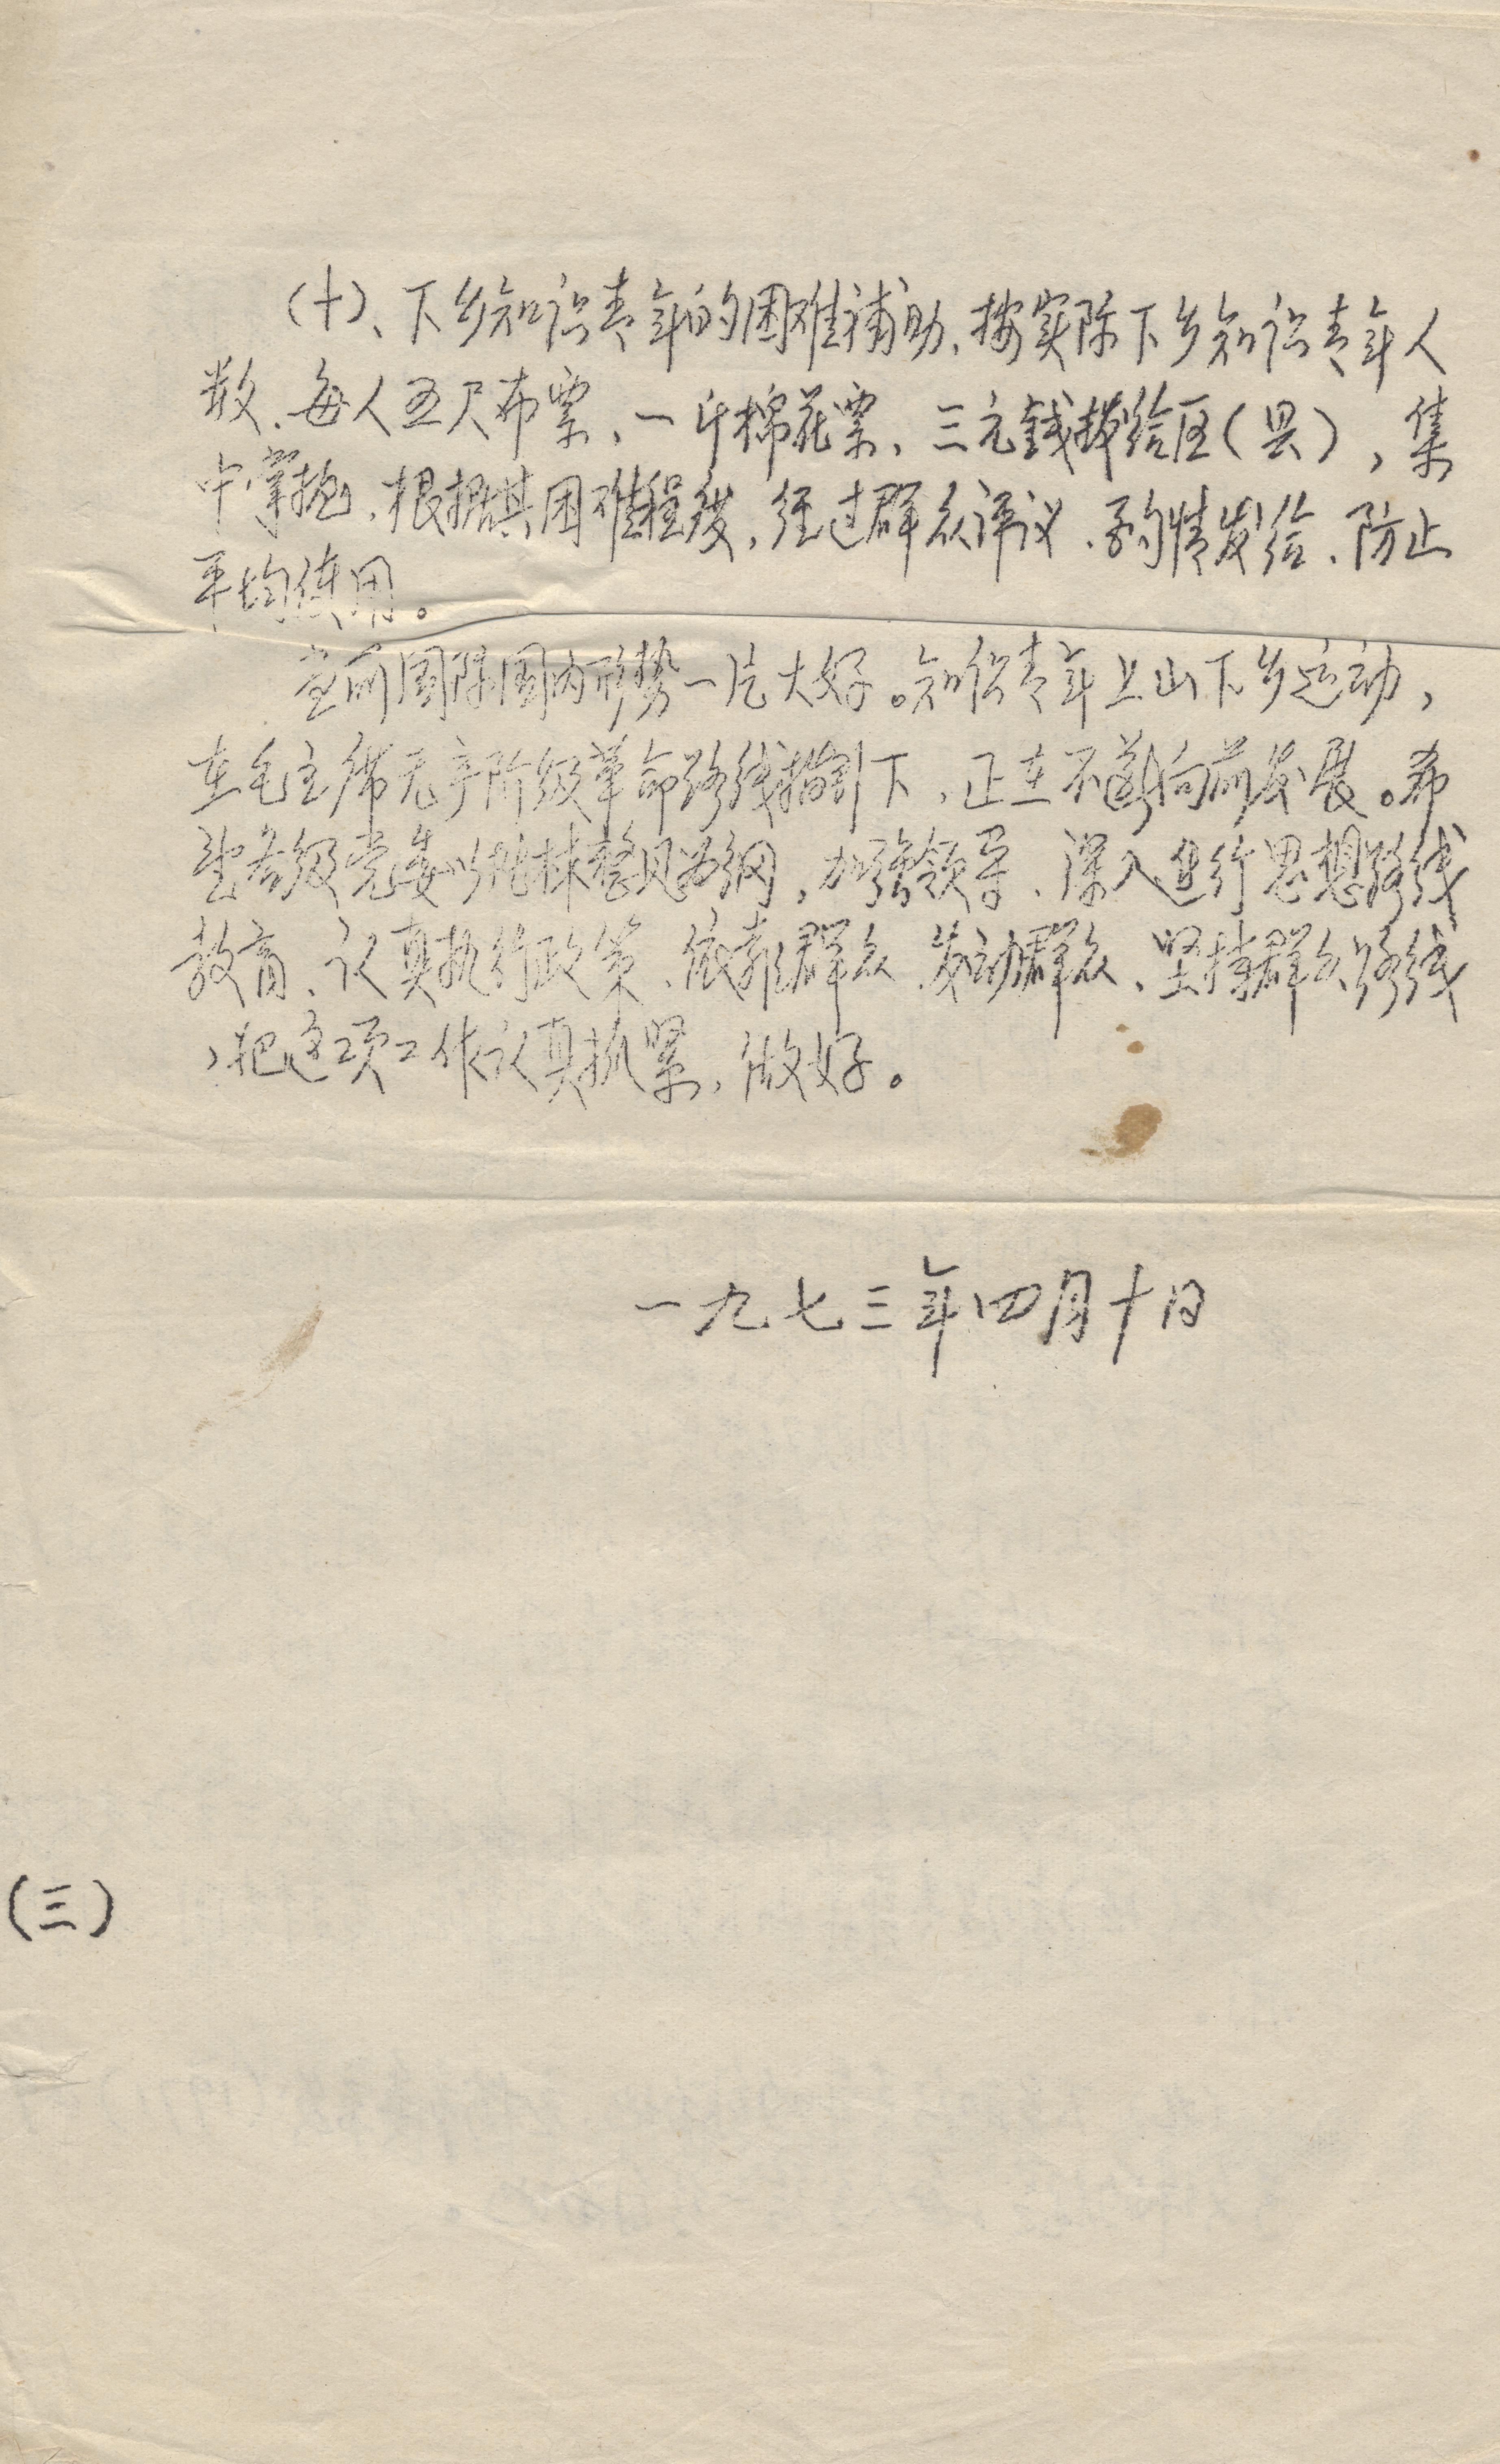 （十）、下乡知识青年的困难补助，按实际下乡知识青年人
数，每人五尺布票，一斤棉花票，三元钱拨给区（县），集
中掌握，根据其困难程度，经过群众评议，酌情发给，防止
平均使用。
当前国际国内形势一片大好。知识青年上山下乡运动，
在毛主席无产阶级革命路线指引下，正在不断向前发展。希
望各级党委以批林整风为纲，加强领导，深入进行思想路线
教育，认真执行政策，依靠群众，发动群众，坚持群众路线
，把这项工作认真抓紧，做好。
一九七三年四月十日
（三）